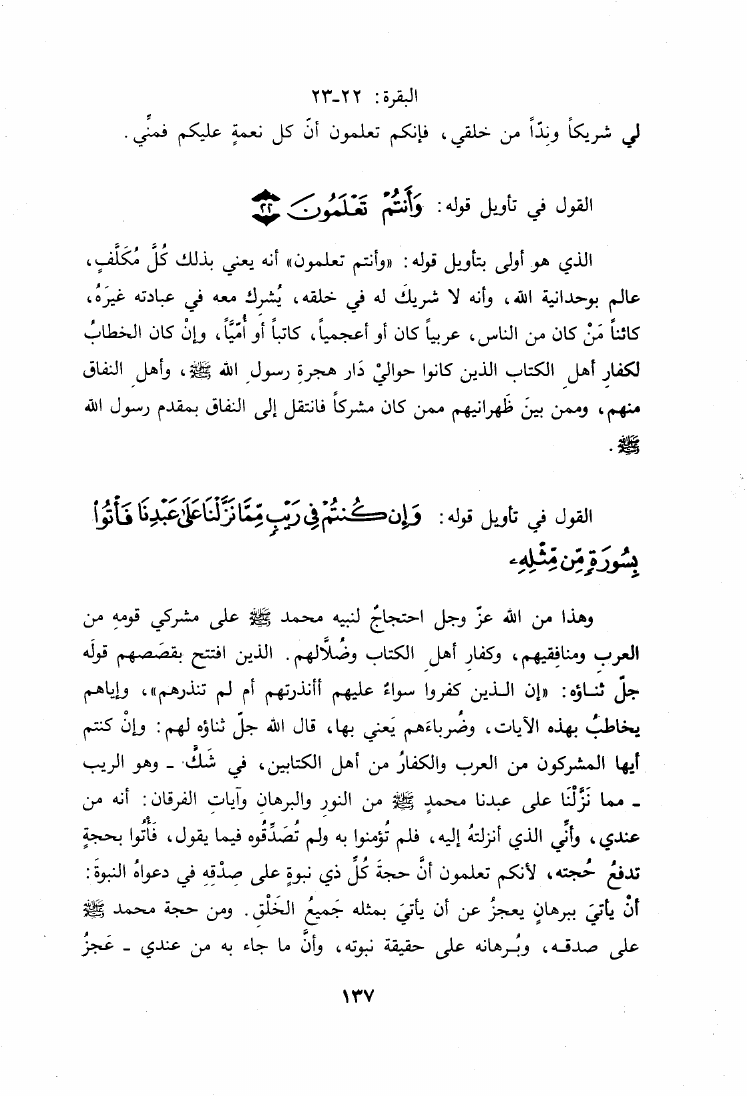 البقرة: ٢٢-٢٣
لي شريكاً ونِدّاً من خلقي، فإنكم تعلمون أنّ كل نعمةٍ عليكم فمنِّي.
القول في تأويل قوله: وَأَنتُمْ تَعْلَمُونَ ٢٢
الذي هو أولى بتأويل قوله: «وأنتم تعلمون» أنه يعني بذلك كُلَّ مُكَلَّفٍ،
عالم بوحدانية الله، وأنه لا شريكَ له في خلقه، يُشرِك معه في عبادته غيرَهُ،
كائناً مَنْ كان من الناس، عربياً كان أو أعجمياً، كاتباً أو أُمّيَّاً، وإنْ كان الخطابُ
لكفارِ أهلِ الكتاب الذين كانوا حواليْ دَار هجرةِ رسولِ الله ﷺ، وأهلِ النفاق
منهم، وممن بينَ ظَهرانيهم ممن كان مشركاً فانتقل إلى النفاق بمقدم رسول الله
ﷺ.
القول في تأويل قوله: وَإِن كُنتُمْ فِي رَيْبٍ مِّمَّا نَزَّلْنَا عَلَىٰ عَبْدِنَا فَأْتُوا۟
بِسُورَةٍ مِّن مِّثْلِهِۦ
وهذا من الله عزّ وجل احتجاجٌ لنبيه محمد ﷺ على مشركي قومهِ من
العربِ ومنافقيهم، وكفارِ أهلِ الكتاب وضُلَّالهم. الذين افتتح بقصَصهم قولَه
جلّ ثناؤه: «إن الذين كفروا سواءٌ عليهم أأنذرتهم أم لم تنذرهم»، وإياهم
يخاطبُ بهذه الآيات، وضُرباءَهم يَعني بها، قال الله جلّ ثناؤه لهم: وإنْ كنتم
أيها المشركون من العرب والكفارُ من أهل الكتابين، في شَكٍّ - وهو الريب
- مما نَزَّلْنَا على عبدنا محمدٍ ﷺ من النور والبرهانِ وآياتِ الفرقان: أنه من
عندي، وأنِّي الذي أنزلتهُ إليه، فلم تُؤمنوا به ولم تُصَدِّقُوه فيما يقول، فَأْتُوا بحجةٍ
تدفعُ حُجته، لأنكم تعلمون أنَّ حجةَ كُلِّ ذي نبوةٍ على صِدْقِهِ في دعواهُ النبوةَ:
أنْ يأتيَ ببرهانٍ يعجزُ عن أن يأتيَ بمثله جَميعُ الخَلْقِ. ومن حجة محمد ﷺ
على صدقه، وبُرهانه على حقيقة نبوته، وأنَّ ما جاء به من عندي - عَجزُ
١٣٧